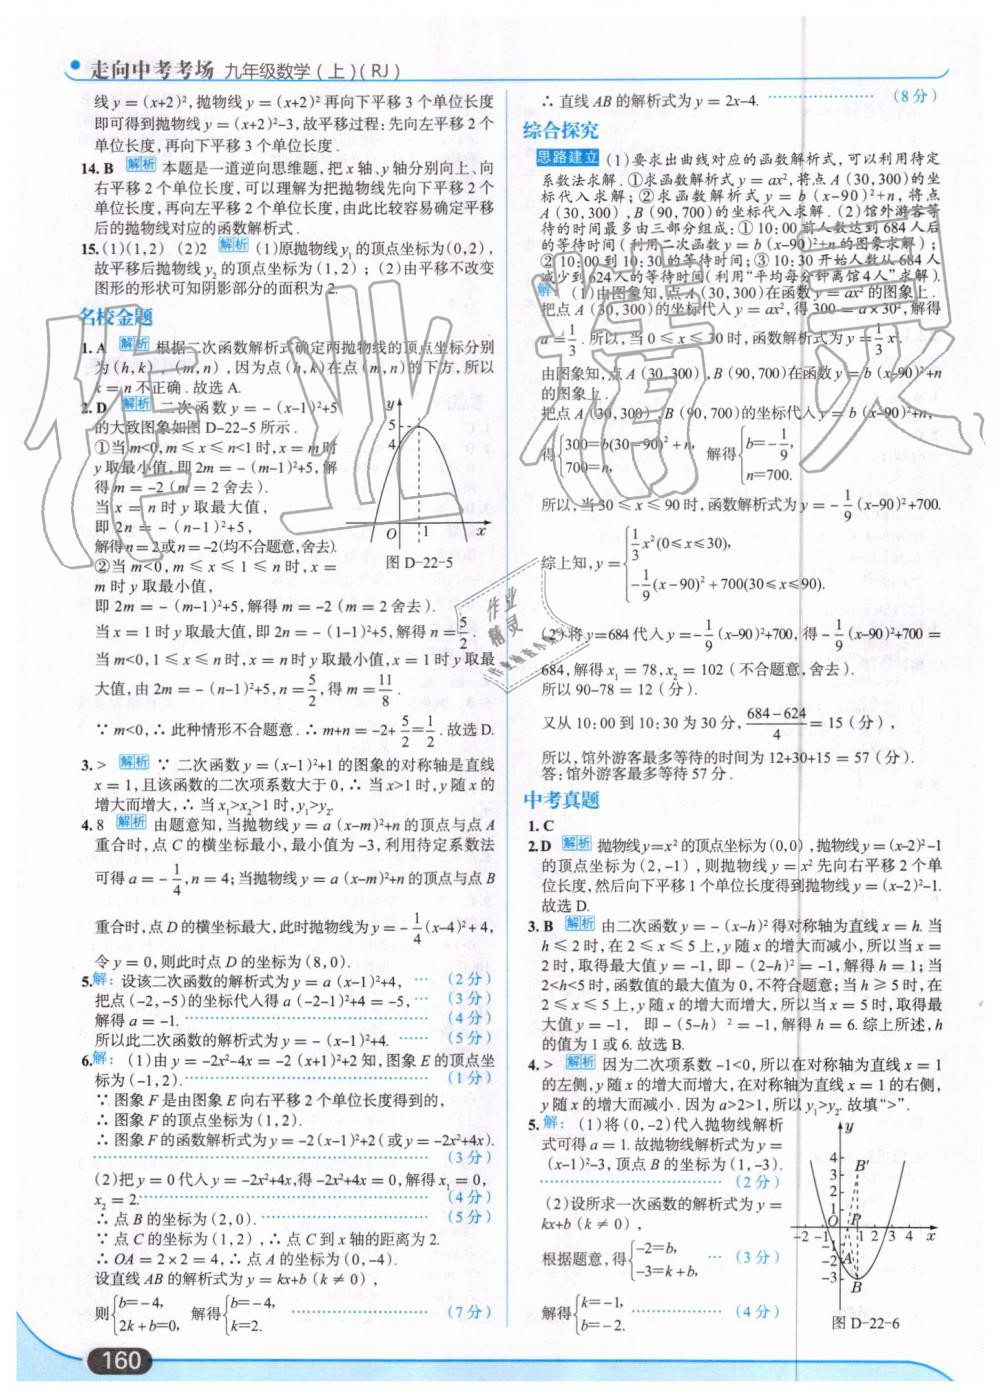 走向中考考场 九年级数学(上)(RJ)
线y=(x+2)²,抛物线y=(x+2)²再向下平移3个单位长度
即可得到抛物线y=(x+2)²-3,故平移过程:先向左平移2个
单位长度,再向下平移3个单位长度.
14.B 解析 本题是一道逆向思维题,把x轴、y轴分别向上、向
右平移2个单位长度,可以理解为把抛物线先向下平移2个
单位长度,再向左平移2个单位长度,由此比较容易确定平移
后的抛物线对应的函数解析式.
15.(1)(1,2) (2)2 解析 (1)原抛物线y₁的顶点坐标为(0,2),
故平移后抛物线y₂的顶点坐标为(1,2);(2)由平移不改变
图形的形状可知阴影部分的面积为2.
名校金题
1.A 解析 根据二次函数解析式确定两抛物线的顶点坐标分别
为(h,k),(m,n),因为点(h,k)在点(m,n)的下方,所以
k=n不正确.故选A.
2.D 解析 二次函数y=-(x-1)²+5
的大致图象如图D-22-5所示.
①当m<0,m≤x≤n<1时,x=m时
y取最小值,即2m=-(m-1)²+5,解
得m=-2(m=2舍去).
当x=n时y取最大值,
即2n=-(n-1)²+5,
解得n=2或n=-2(均不合题意,舍去).
②当m<0,m≤x≤1≤n时,x=
m时y取最小值,
即2m=-(m-1)²+5,解得m=-2(m=2舍去).
当x=1时y取最大值,即2n=-(1-1)²+5,解得n=5/2.
当m<0,1≤x≤n时,x=m时y取最小值,x=1时y取最
大值,由2m=-(n-1)²+5,n=5/2,得m=11/8.
∵m<0,∴此种情形不合题意.∴m+n=-2+5/2=1/2.故选D.
y
5
4
O
1
x
图D-22-5
3.> 解析 ∵二次函数y=(x-1)²+1的图象的对称轴是直线
x=1,且该函数的二次项系数大于0,∴当x>1时,y随x的
增大而增大,∴当x₁>x₂>1时,y₁>y₂.
4.8 解析 由题意知,当抛物线y=a(x-m)²+n的顶点与点A
重合时,点C的横坐标最小,最小值为-3,利用待定系数法
可得a=-1/4,n=4;当抛物线y=a(x-m)²+n的顶点与点B
重合时,点D的横坐标最大,此时抛物线为y=-1/4(x-4)²+4,
令y=0,则此时点D的坐标为(8,0).
5.解:设该二次函数的解析式为y=a(x-1)²+4, …(2分)
把点(-2,-5)的坐标代入得a(-2-1)²+4=-5, …(3分)
解得a=-1. …(4分)
所以此二次函数的解析式为y=-(x-1)²+4. …(5分)
6.解:(1)由y=-2x²-4x=-2(x+1)²+2知,图象E的顶点坐
标为(-1,2). …(1分)
∵图象F是由图象E向右平移2个单位长度得到的,
∴图象F的顶点坐标为(1,2).
∴图象F的函数解析式为y=-2(x-1)²+2(或y=-2x²+4x).
…(3分)
(2)把y=0代入y=-2x²+4x,得-2x²+4x=0,解得x₁=0,
x₂=2. …(4分)
∴点B的坐标为(2,0). …(5分)
∵点C的坐标为(1,2),∴点C到x轴的距离为2.
∴OA=2×2=4,∴点A的坐标为(0,-4).
设直线AB的解析式为y=kx+b(k≠0),
则{b=-4, 2k+b=0, 解得{b=-4, k=2. …(7分)
∴直线AB的解析式为y=2x-4. …(8分)
综合探究
思路建立 (1)要求出曲线对应的函数解析式,可以利用待定
系数法求解.①求函数解析式y=ax²,将点A(30,300)的坐
标代入求解;②求函数解析式y=b(x-90)²+n,将点
A(30,300),B(90,700)的坐标代入求解.(2)馆外游客等
待的时间最多由三部分组成:①10:00前人数达到684人后
的等待时间(利用二次函数y=b(x-90)²+n的图象求解);
②10:00到10:30的等待时间;③10:30开始人数从684人
减少到624人的等待时间(利用“平均每分钟离馆4人”求解).
解:(1)由图象知,点A(30,300)在函数y=ax²的图象上.
把点A(30,300)的坐标代入y=ax²,得300=a×30²,解得
a=1/3.所以,当0≤x≤30时,函数解析式为y=1/3x².
由图象知,点A(30,300),B(90,700)在函数y=b(x-90)²+n
的图象上.
把点A(30,300),B(90,700)的坐标代入y=b(x-90)²+n,
得{300=b(30-90)²+n, 700=n, 解得{b=-1/9, n=700.
所以,当30≤x≤90时,函数解析式为y=-1/9(x-90)²+700.
综上知,y={1/3x²(0≤x≤30), -1/9(x-90)²+700(30≤x≤90).
(2)将y=684代入y=-1/9(x-90)²+700,得-1/9(x-90)²+700=
684,解得x₁=78,x₂=102(不合题意,舍去).
所以90-78=12(分).
又从10:00到10:30为30分,(684-624)/4=15(分),
所以,馆外游客最多等待的时间为12+30+15=57(分).
答:馆外游客最多等待57分.
中考真题
1.C
2.D 解析 抛物线y=x²的顶点坐标为(0,0),抛物线y=(x-2)²-1
的顶点坐标为(2,-1),则抛物线y=x²先向右平移2个单
位长度,然后向下平移1个单位长度得到抛物线y=(x-2)²-1.
故选D.
3.B 解析 由二次函数y=-(x-h)²得对称轴为直线x=h.当
h≤2时,在2≤x≤5上,y随x的增大而减小,所以当x=
2时,取得最大值y=-1,即-(2-h)²=-1,解得h=1;当
2<h<5时,函数值的最大值为0,不符合题意;当h≥5时,在
2≤x≤5上,y随x的增大而增大,所以当x=5时,取得最
大值y=-1, 即-(5-h)²=-1,解得h=6.综上所述,h
的值为1或6.故选B.
4.> 解析 因为二次项系数-1<0,所以在对称轴为直线x=1
的左侧,y随x的增大而增大,在对称轴为直线x=1的右侧,
y随x的增大而减小.因为a>2>1,所以y₁>y₂.故填“>”.
5.解:(1)将(0,-2)代入抛物线解析
式可得a=1.故抛物线解析式为y=
(x-1)²-3,顶点B的坐标为(1,-3).
…(2分)
(2)设所求一次函数的解析式为y=
kx+b(k≠0),
根据题意,得{-2=b, -3=k+b, …(3分)
解得{k=-1, b=-2. …(4分)
y
4
3
2
1
B'
O
P
-2 -1 1 2 3 4 x
A
-2
-3
B
图D-22-6
160
作业精灵
作业
精灵